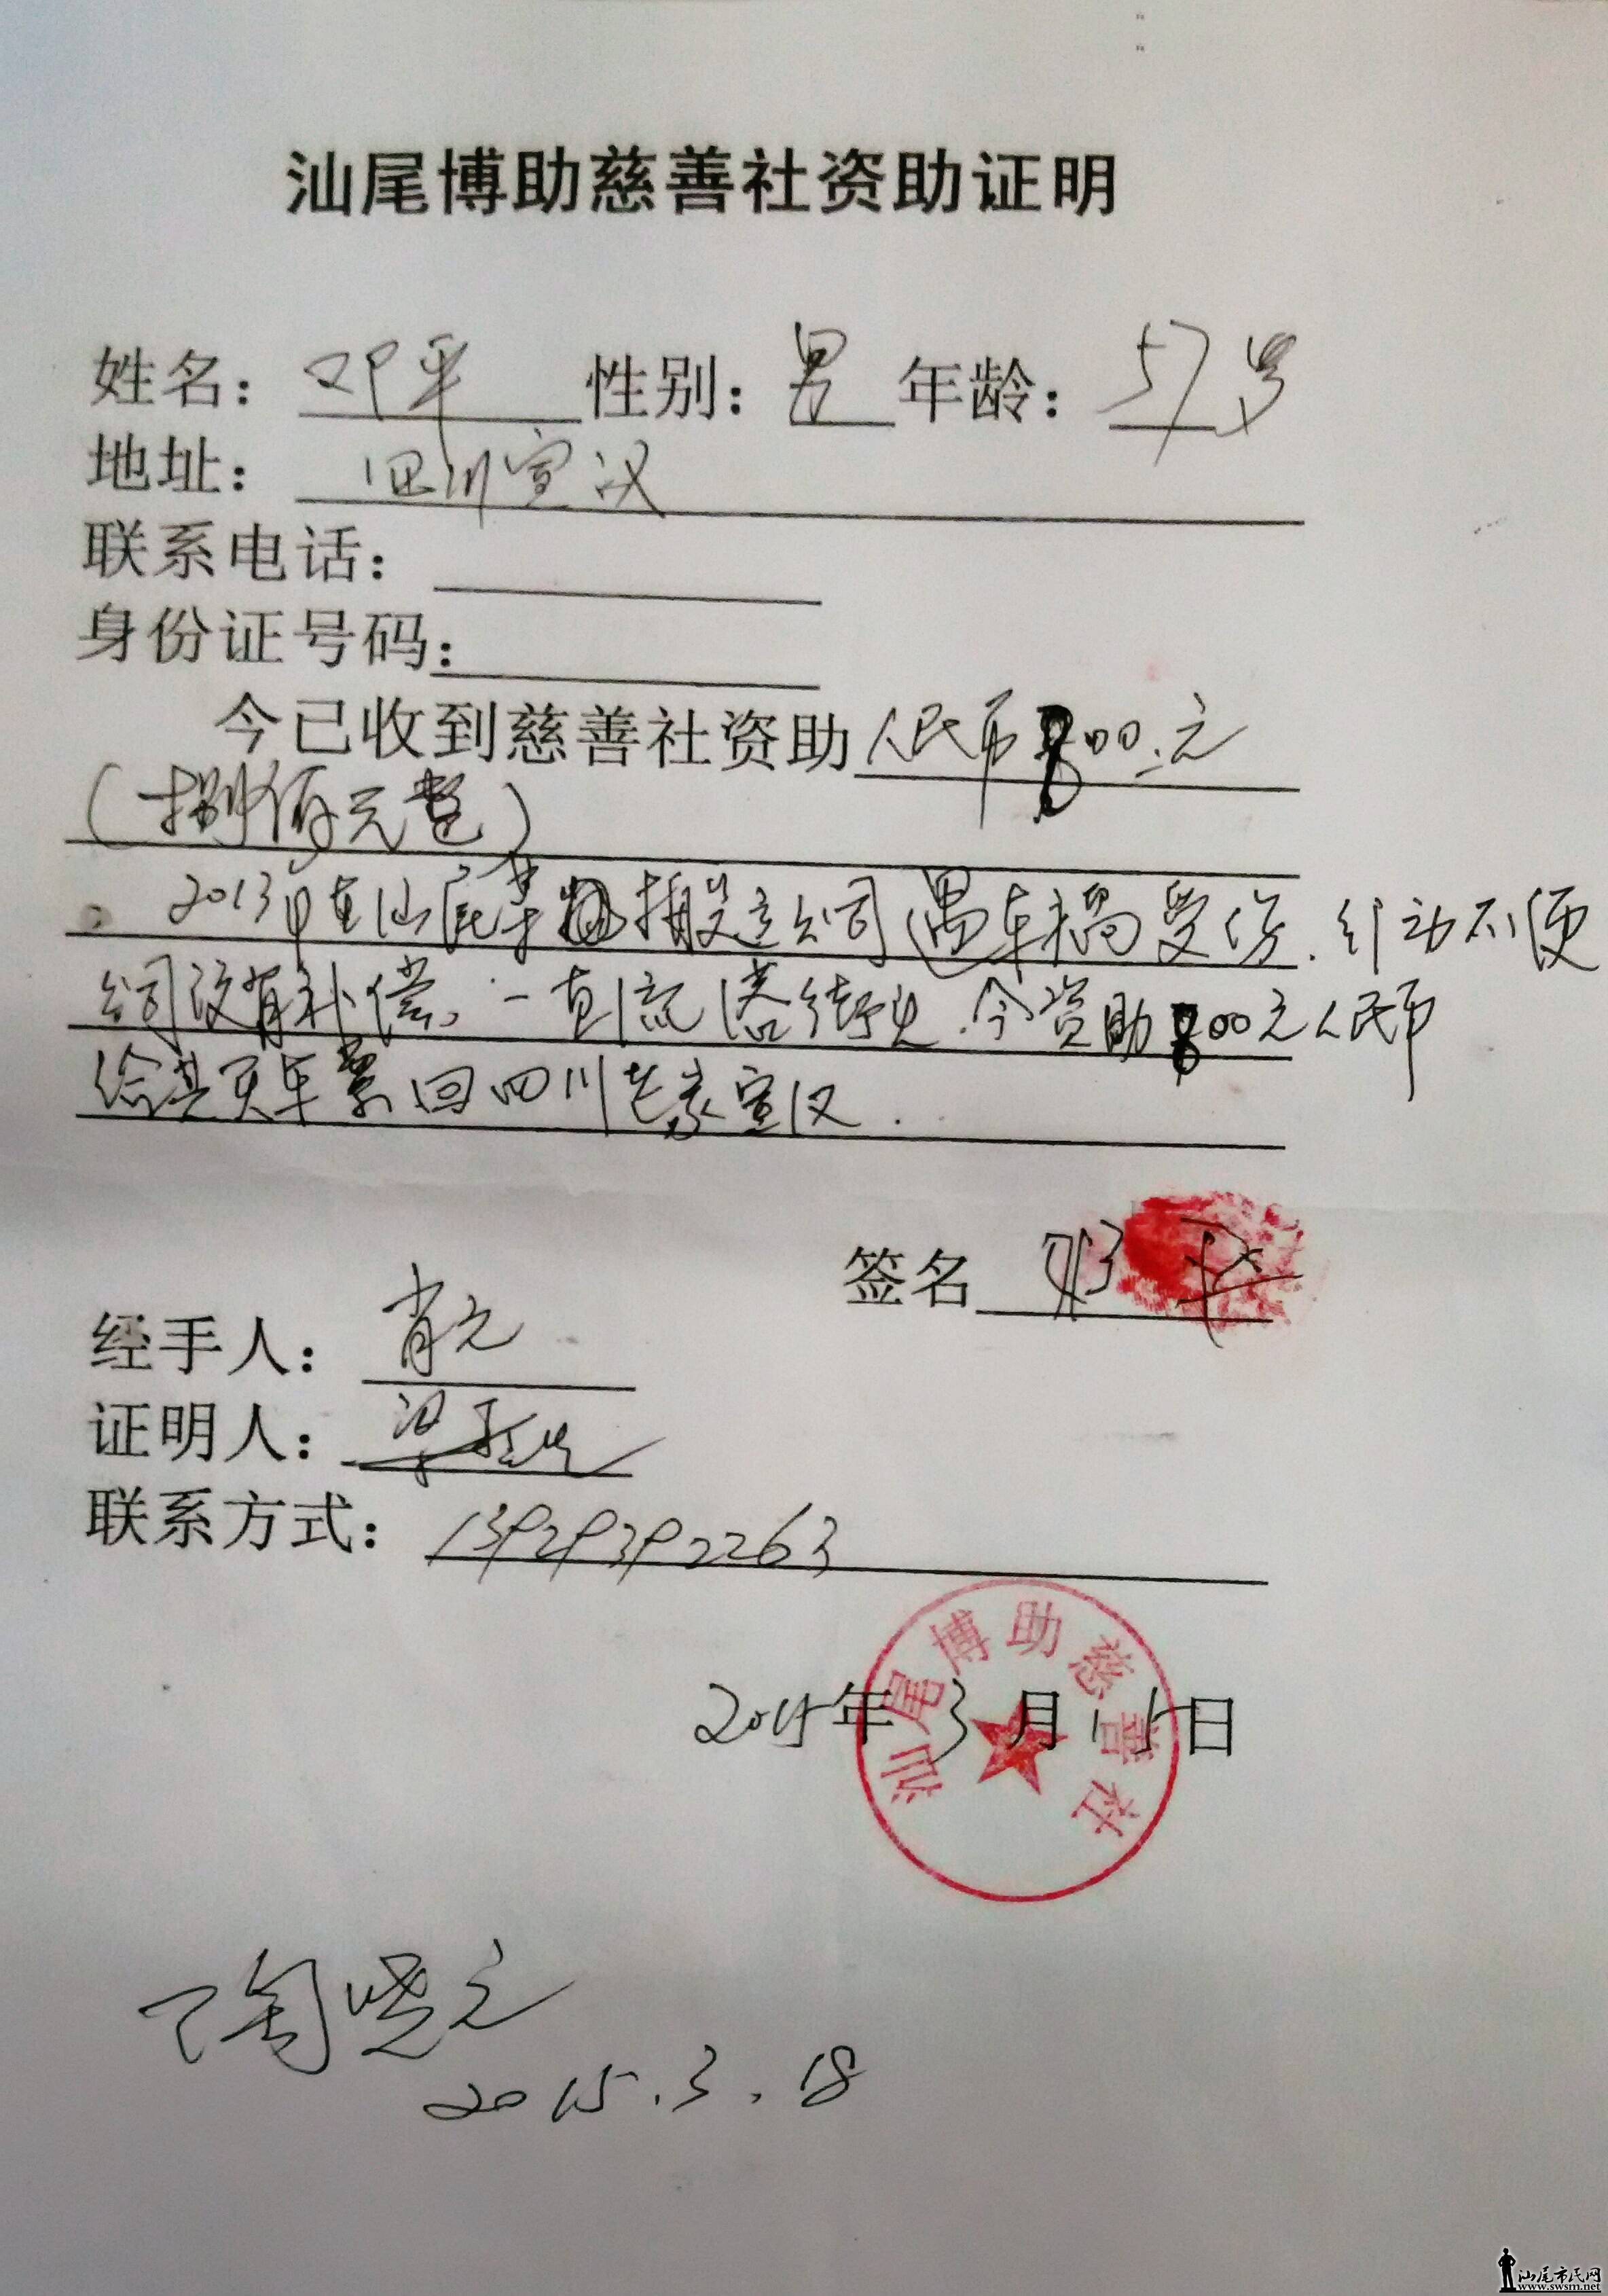 汕尾博助慈善社资助证明
姓名：邓平 性别：男 年龄：57岁
地址：四川宣汉
联系电话：
身份证号码：
今已收到慈善社资助人民币800.元
（捌佰元整）
2013年在汕尾某搬运公司遇车祸受伤.行动不便
公司没有补偿、一直流落街头.今资助800元人民币
给其买车票回四川老家宣汉.
签名 邓平
经手人：肖元
证明人：梁
联系方式：13929392263
2015年3月15日
汕尾博助慈善社
陶晓元
2015.3.18
汕尾市民网
www.swsm.net